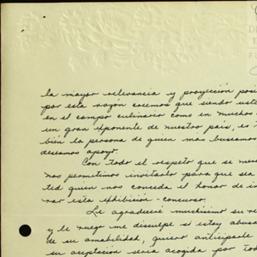 la mayor relevancia y proyección posi
por esta razón creemos que siendo uste
en el campo culinario como en muchos
un gran exponente de nuestro país, es
bién la persona de quien mas buscamos
deseamos apoyo.
Con todo el respeto que se mere
nos permitimos invitarlo para que sea
ted quien nos conceda el honor de in
rar esta exhibición-concurso.
Le agradeceré muchísimo su re
y le ruego me disculpe si estoy abusa
de su amabilidad, quiero anticiparle
su aceptación sería acogida por tod